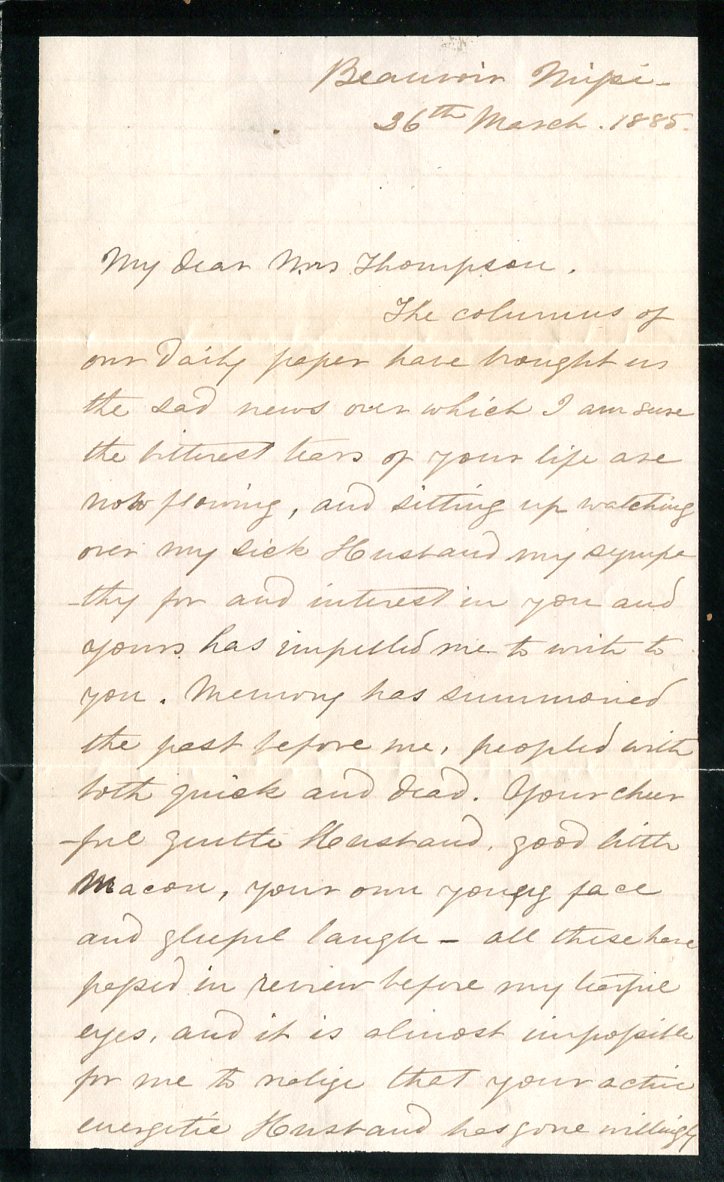 Beauvoir Missi-
26th March. 1885.
My dear Mrs Thompson.
The columns of
our daily paper have brought us
the sad news over which I am sure
the bitterest tears of your life are
now flowing, and sitting up watching
over my sick Husband my sympa
-thy for and interest in you and
yours has impelled me to write to
you. Memory has summoned
the past before me, peopled with
both quick and dead. Your cheer
-ful gentle Husband, good little
Macon, your own young face
and gleeful laugh - all these have
passed in review before my tearful
eyes, and it is almost impossible
for me to realize that your active
energetic Husband has gone willingly